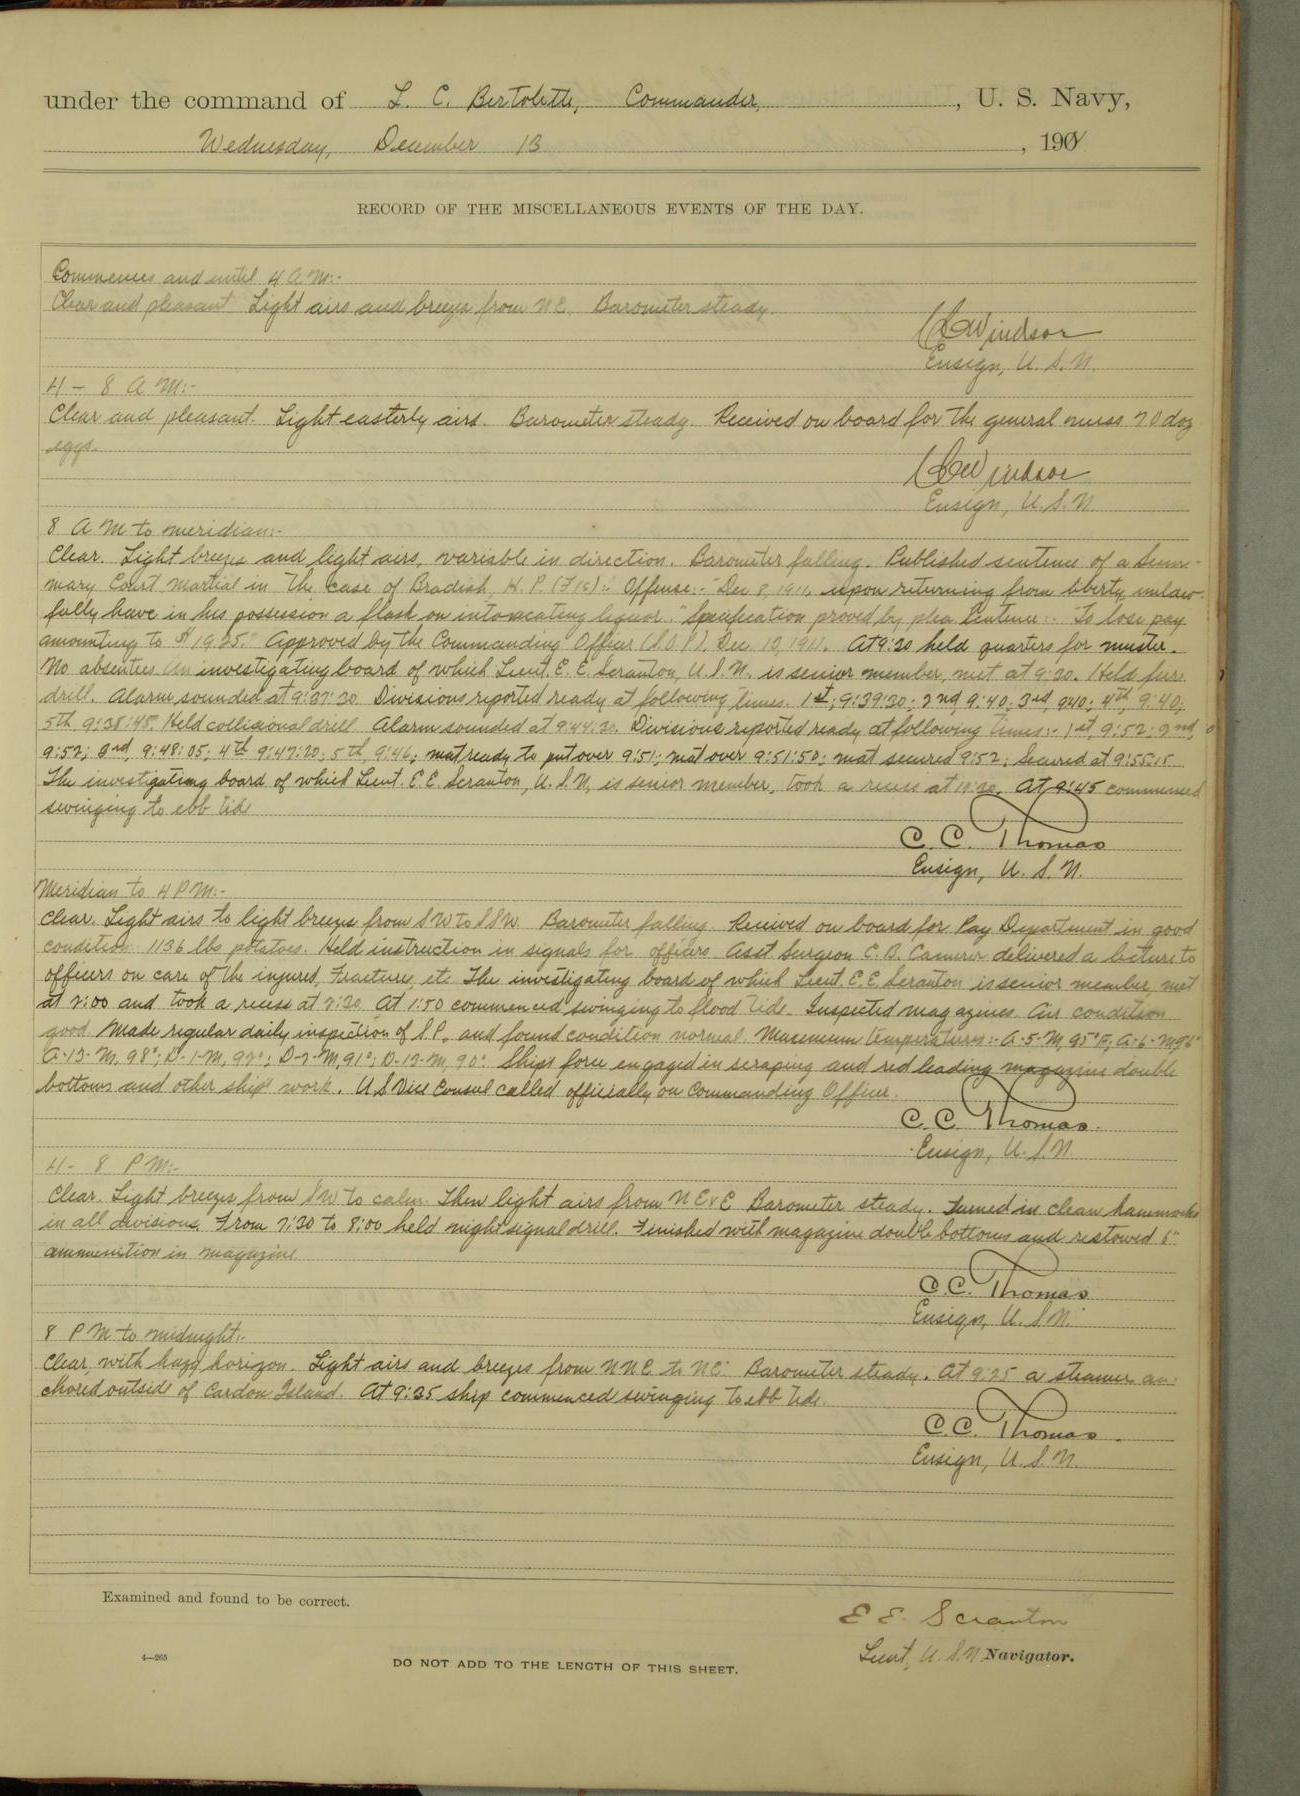 under the command of L. C. Bertolette, Commander, , U. S. Navy,
Wednesday, December 13 , 190
RECORD OF THE MISCELLANEOUS EVENTS OF THE DAY.
Commences and until 4 A M:-
Clear and pleasant Light airs and breezes from NE. Barometer steady.
Windsor
Ensign, U. S. N.
4 – 8 A M:-
Clear and pleasant. Light easterly airs. Barometer steady. Received on board for the general mess 70 doz
eggs.
Windsor
Ensign, U. S. N.
8 A M to meridian:-
Clear. Light breezes and light airs, variable in direction. Barometer falling. Published sentence of a Sum-
mary Court Martial in the case of Bradish, H. P. Offense:- "Dec 8, 1911, upon returning from liberty, unlaw-
fully have in his possession a flask on intoxicating liquor." Specification proved by plea Sentence:- "To lose pay
amounting to $19.25." Approved by the Commanding Officer (S.O.P.), Dec. 12, 1911. At 9:20 held quarters for muster.
No absentees An investigating board of which Lieut. E. E. Scranton, U. S. N. is senior member, met at 9:30. Held fire
drill. Alarm sounded at 9:37:30 Divisions reported ready at following times. 1st; 9:39:30; 2nd, 9:40; 3rd, 940; 4th, 9:40;
5th 9:38:48. Held collisional drill Alarm sounded at 9:44:30. Divisions reported ready at following times:- 1st, 9:52; 2nd,
9:52; 3rd, 9:48:05; 4th 9:47:20; 5th 9:46; mat ready to put over 9:51; mat over 9:51:50; mat secured 9:52; Secured at 9:55:15
The investigating board of which Lieut. E. E. Scranton, U. S. N. is senior member, took a recess at 10:30. At 9:45 commenced
swinging to ebb tide
C. C. Thomas
Ensign, U. S. N.
Meridian to 4 P M:-
Clear. Light airs to light breeze from SW to SSW Barometer falling Received on board for Pay Department in good
condition 1136 lbs potatoes. Held instruction in signals for officers Asst Surgeon C. B. Camerer delivered a lecture to
officers on care of the injured, Fractures, etc The investigating board of which Lieut. E. E. Scranton is senior member, met
at 2:00 and took a recess at 2:30 At 1:50 commenced swinging to flood tide. Inspected magazines Air condition
good. Made regular daily inspection of S.P. and found condition normal. Maximum temperatures:- A-5-M, 95°F; A-6-M 96°
A-13-M, 98°; D-1-M, 92°; D-2-M, 91°; D-13-M, 90°. Ships force engaged in scraping and red leading magazine double
bottoms and other ship work. U S Vice Consul called officially on Commanding Officer.
C. C. Thomas.
Ensign, U. S. N.
4 - 8 P M:-
Clear. Light breezes from SW to calm. Then light airs from NE&E Barometer steady. Turned in clean hammocks
in all divisions. From 7:30 to 8:00 held night signal drill. Finished with magazine double bottoms and restowed 6"
ammunition in magazine.
C. C. Thomas
Ensign, U. S. N.
8 P M to midnight:-
Clear, with hazy horizon. Light airs and breezes from NNE to NE. Barometer steady. At 9:25 a steamer an-
chored outside of Cardon Island. At 9:35 ship commenced swinging to ebb tide.
C. C. Thomas.
Ensign, U. S. N.
Examined and found to be correct.
E E. Scranton
Lieut, U. S. N. Navigator.
4—265
DO NOT ADD TO THE LENGTH OF THIS SHEET.